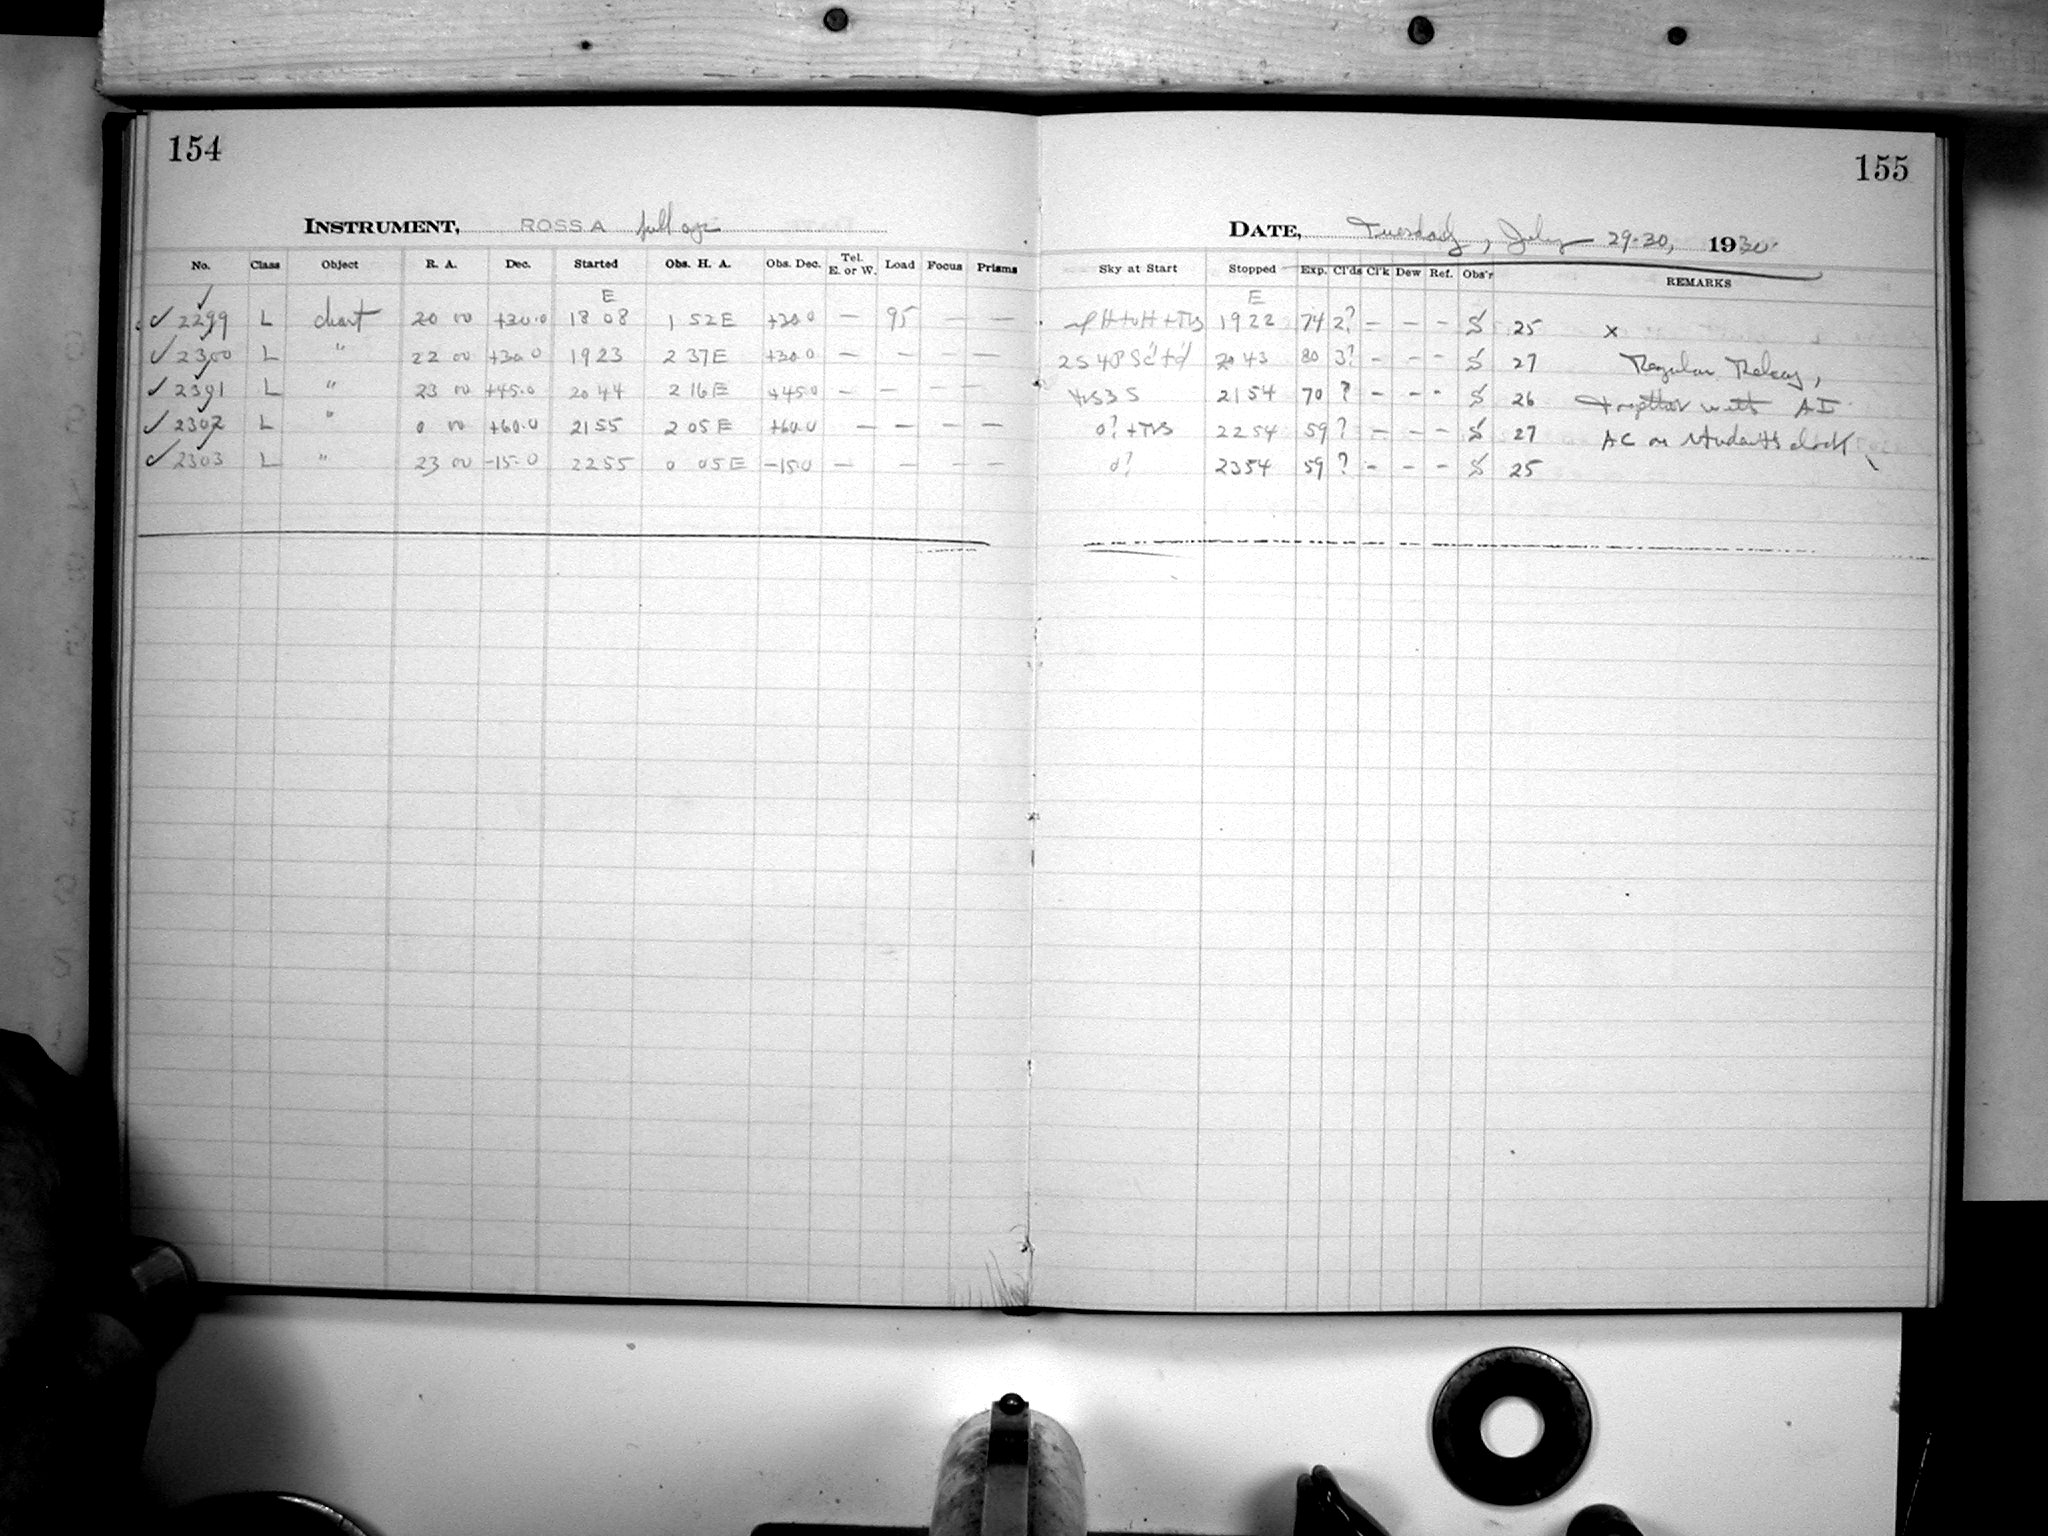 154
INSTRUMENT, ROSS A full ap
No. Class Object R. A. Dec. Started Obs. H. A. Obs. Dec. Tel. E. or W. Load Focus Prisms
E
✓ 2299 L chart 20 00 +30.0 18 08 1 52 E +30 0 — 95 — —
✓ 2300 L " 22 00 +30 0 19 23 2 37 E +30 0 — — — —
✓ 2301 L " 23 00 +45.0 20 44 2 16 E +45.0 — — — —
✓ 2302 L " 0 00 +60.0 21 55 2 05 E +60.0 — — — —
✓ 2303 L " 23 00 -15.0 22 55 0 05 E -15.0 — — — —
155
DATE, Tuesday, July 29-30, 1930
Sky at Start Stopped Exp. Cl'ds Cl'k Dew Ref. Obs'r REMARKS
E
19 22 74 2? – – – S 25 x
20 43 80 3? – – – S 27 Regular Relay,
21 54 70 ? – – – S 26 together with AI
22 54 59 ? – – – S 27 AC on students clock
0? 23 54 59 ? – – – S 25